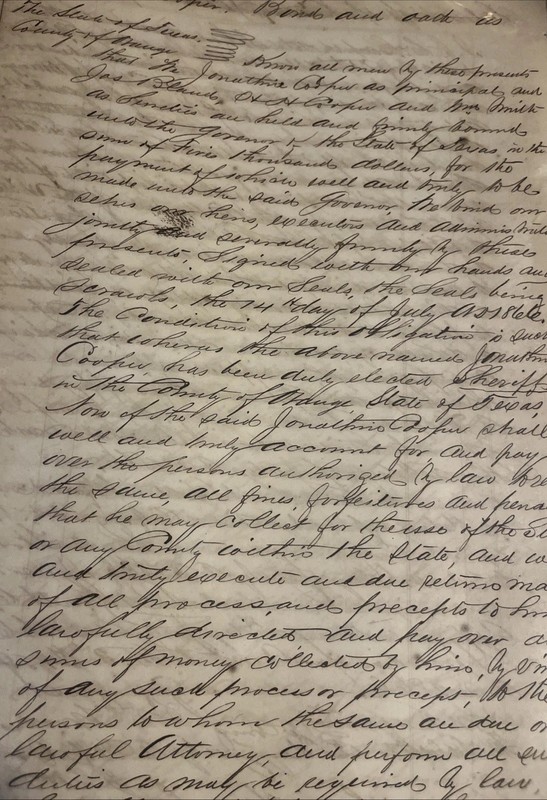 per. Bond and oath as
The State of Texas.
County of Orange
Know all men by these presents
that we Jonathan Cooper as principal and
Jas and Wm Smith
as Sureties are held and firmly bound
unto the Governor of the State of Texas, in the
sum of Five thousand dollars, for the
payment of which well and truly to be
made unto the said Governor, We bind our
selves heirs, executors and administra
jointly and severally firmly by these
presents. Signed with our hands and
sealed with our Seals, the Seals being
Scrawls, the 14th day of July AD
The Condition of this obligation is such
that whereas the above named Jonathan
Cooper, has been duly elected Sheriff
in the County of Orange State of Texas
Now if the said Jonathan Cooper shall
well and truly account for and pay
over the persons authorized by law to re
the same, all fines, forfeitures and pena
that he may collect for the use of the St
or any County within the State, and w
and truly execute and due return ma
of all process and precepts to him
lawfully directed and pay over a
sums of money collected by him, by vir
of any such process or precept, to the
persons to whom the same are due or
lawful Attorney, and perform all su
duties as may be required by law,